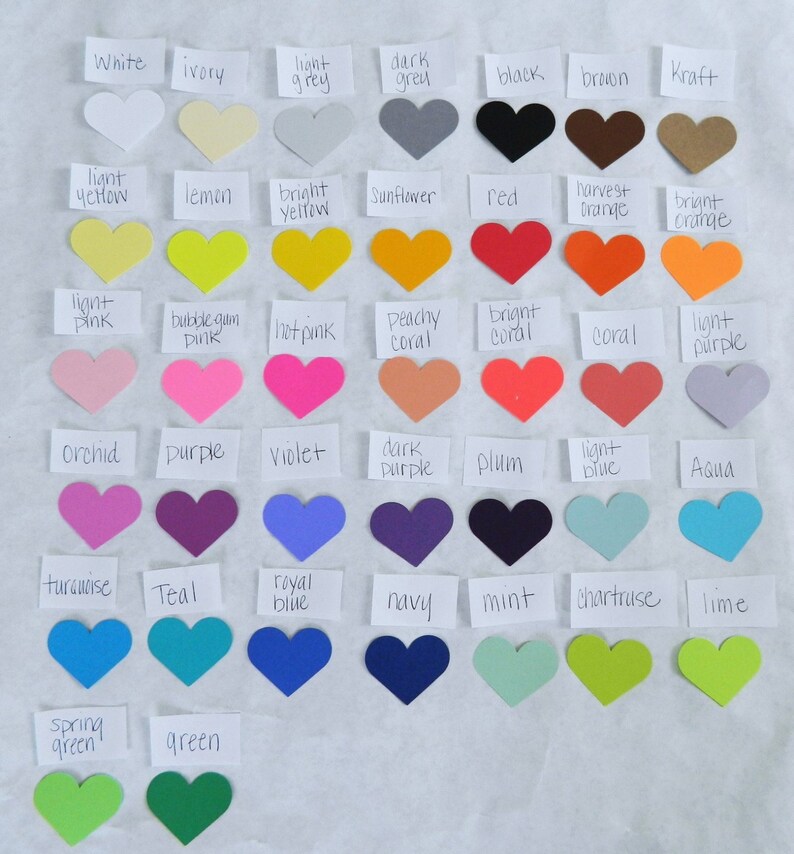 white
ivory
light
grey
dark
grey
black
brown
Kraft
light
yellow
lemon
bright
yellow
sunflower
red
harvest
orange
bright
orange
light
pink
bubblegum
pink
hotpink
peachy
coral
bright
coral
coral
light
purple
orchid
purple
violet
dark
purple
plum
light
blue
Aqua
turquoise
Teal
royal
blue
navy
mint
chartruse
lime
spring
green
green